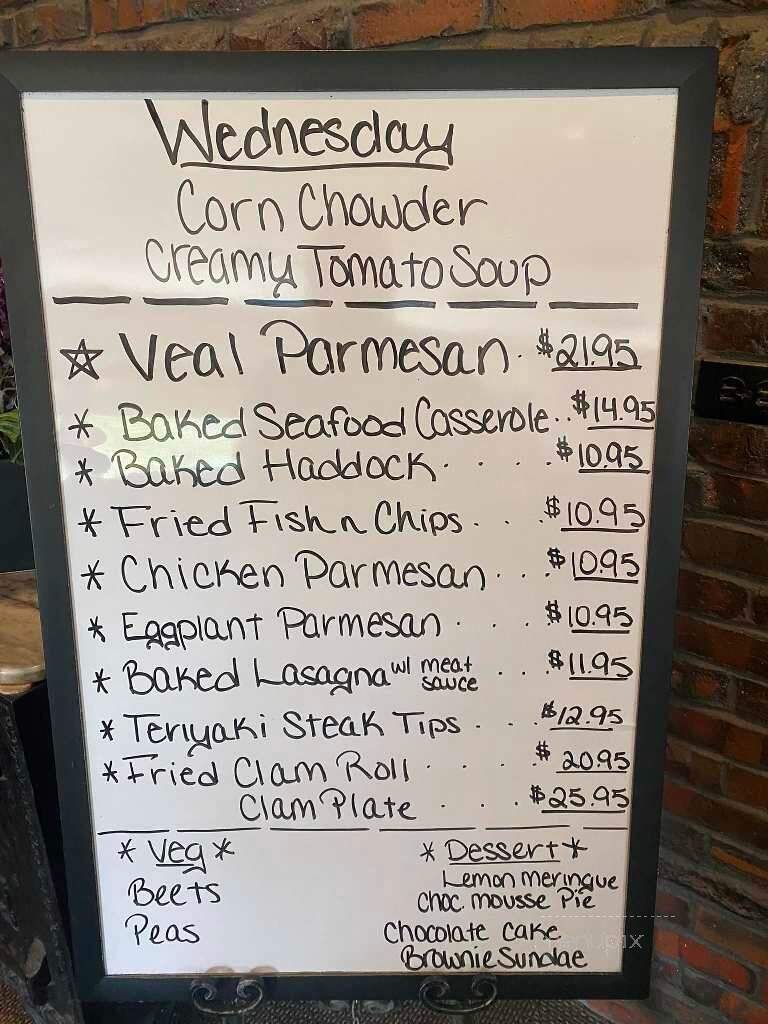 Wednesday
Corn Chowder
Creamy Tomato Soup
☆ Veal Parmesan . $21.95
* Baked Seafood Casserole . . $14.95
* Baked Haddock . . . . $10.95
* Fried Fish n Chips . . . $10.95
* Chicken Parmesan . . . $10.95
* Eggplant Parmesan . . . $10.95
* Baked Lasagna w/ meat sauce . . $11.95
* Teriyaki Steak Tips . . . $12.95
* Fried Clam Roll . . . . $20.95
Clam Plate . . . . $25.95
* Veg *
Beets
Peas
* Dessert *
Lemon meringue
Choc. mousse Pie
Chocolate Cake
Brownie Sundae
menupix